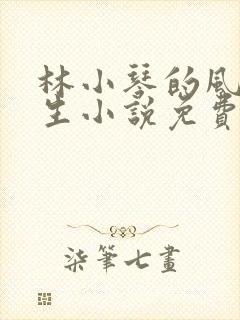 林小琴的風
生小說免費
柒筆七畫